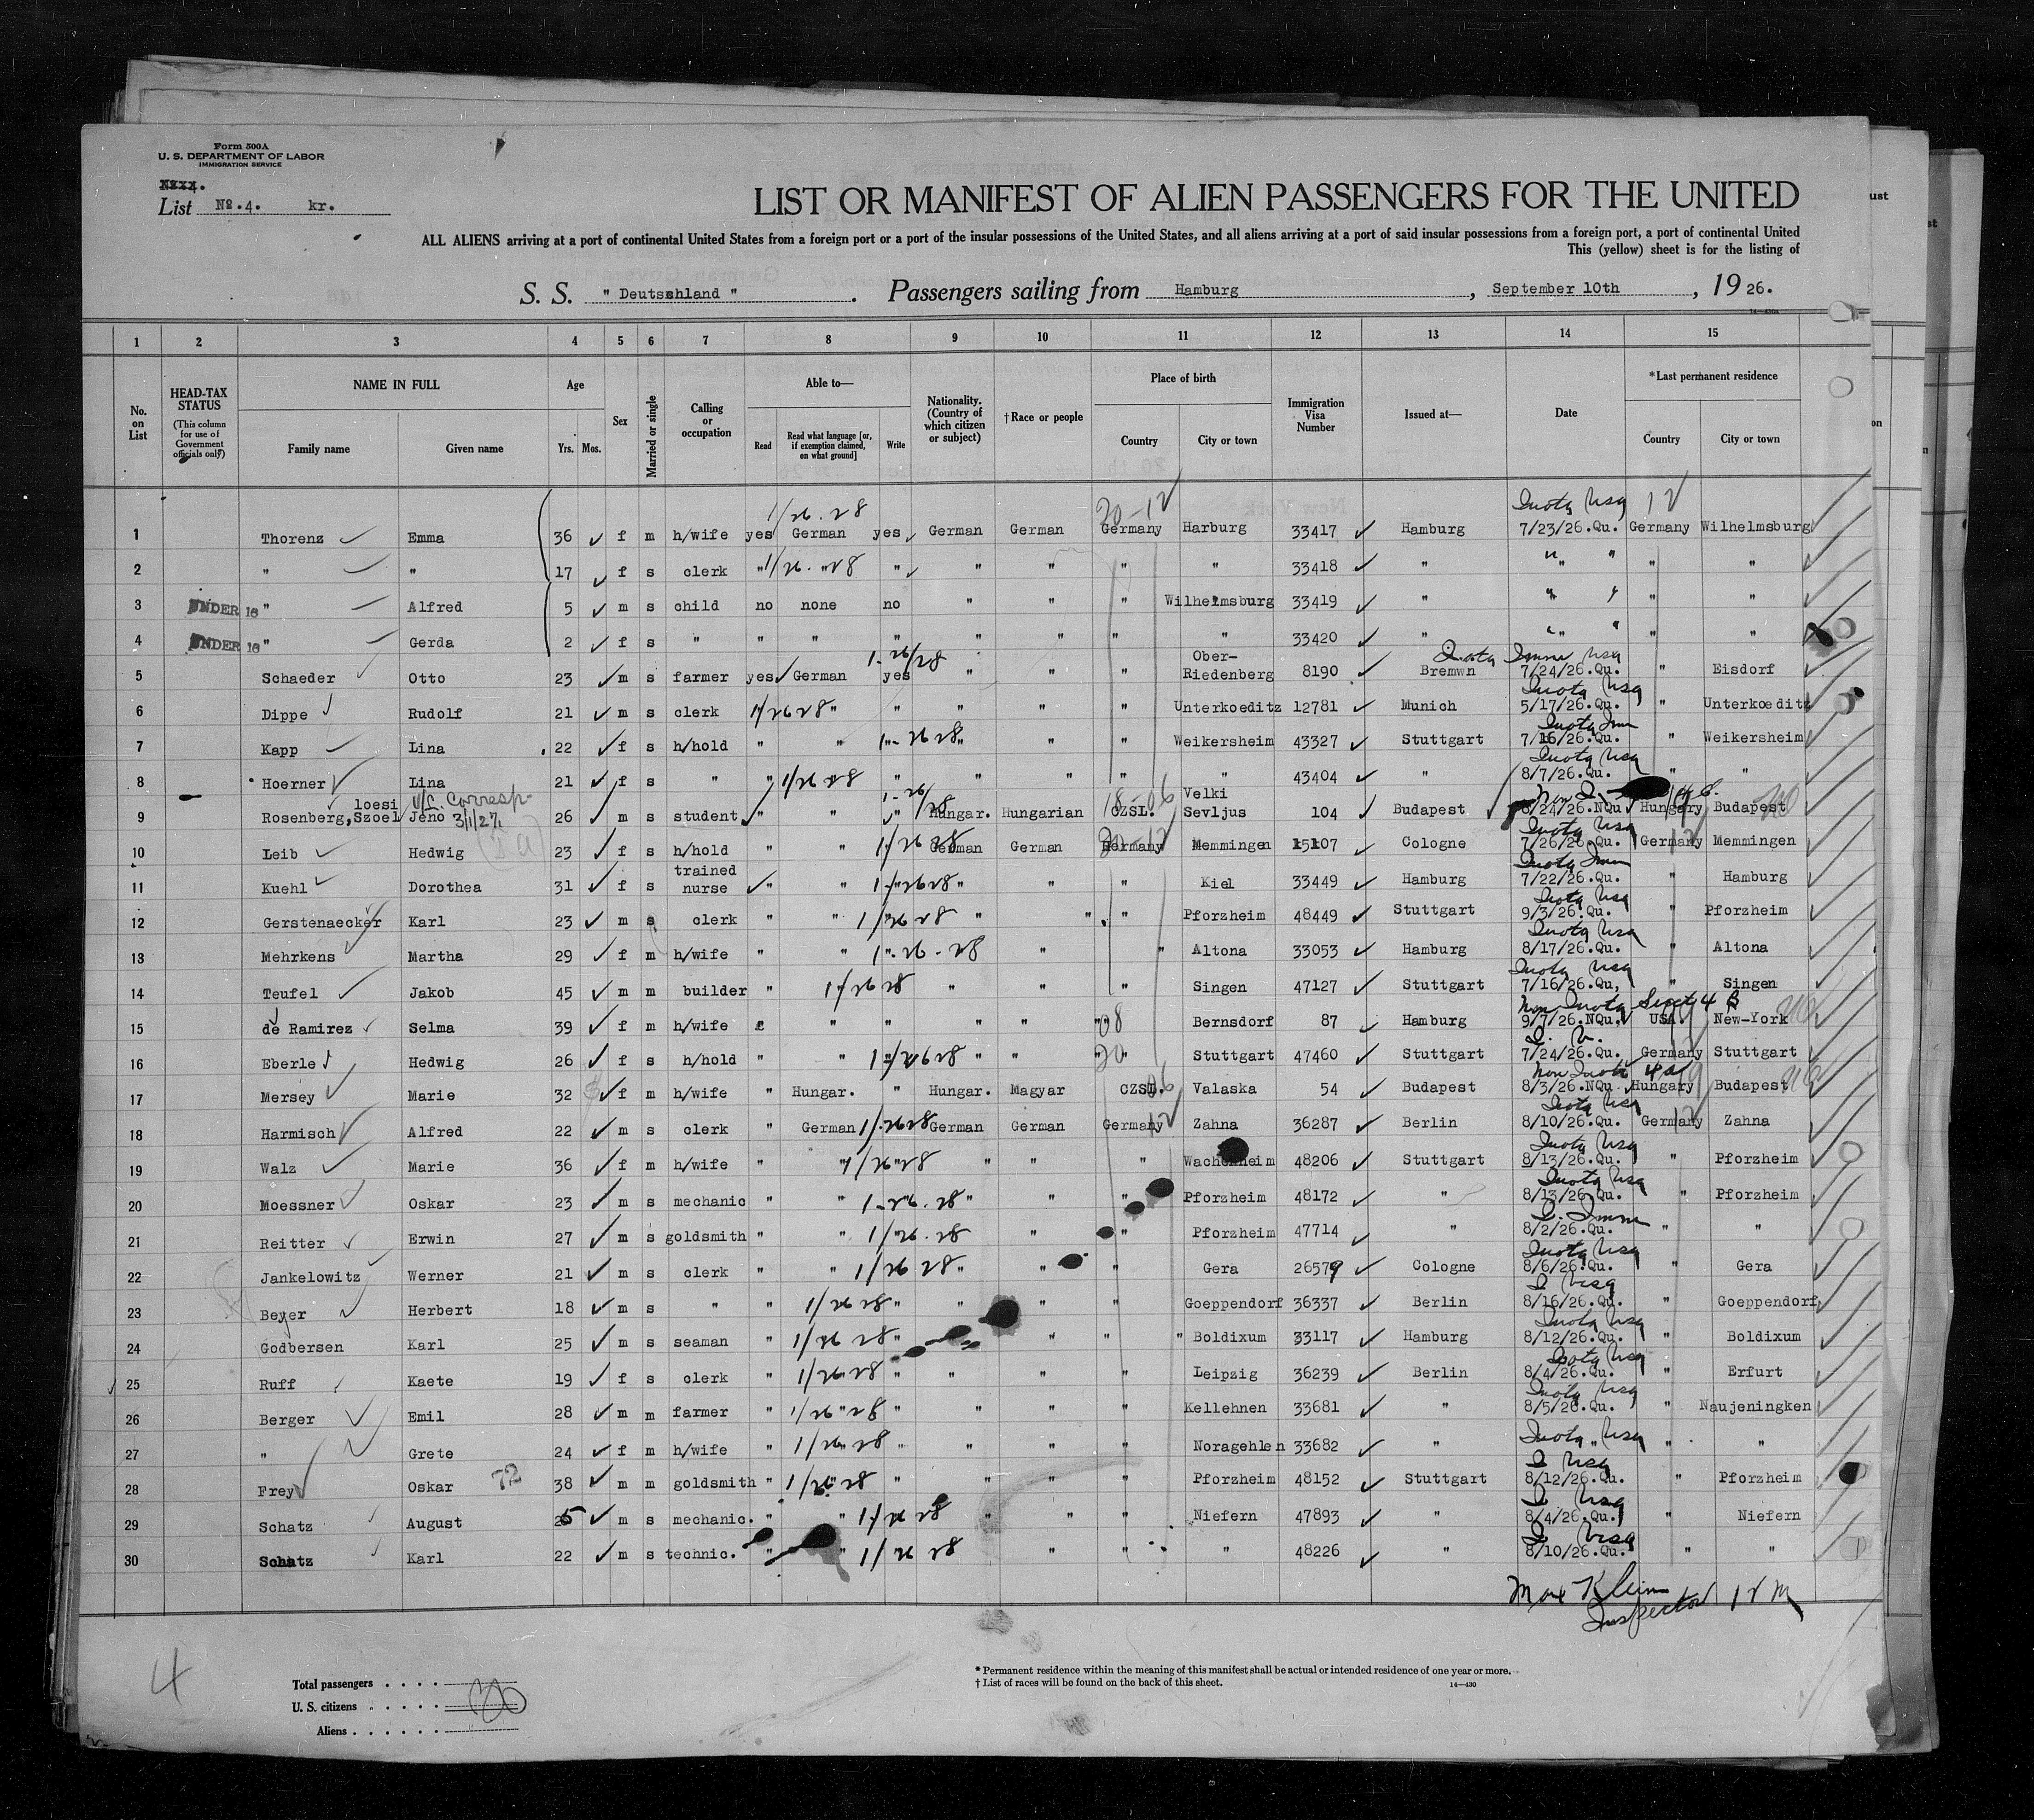 Form 500A
U. S. DEPARTMENT OF LABOR
IMMIGRATION SERVICE
List No. 4. kr.
LIST OR MANIFEST OF ALIEN PASSENGERS FOR THE UNITED
ALL ALIENS arriving at a port of continental United States from a foreign port or a port of the insular possessions of the United States, and all aliens arriving at a port of said insular possessions from a foreign port, a port of continental United
This (yellow) sheet is for the listing of
S. S. " Deutschland " . Passengers sailing from Hamburg , September 10th , 19 26.
1 2 3 4 5 6 7 8 9 10 11 12 13 14 15
No. on List HEAD-TAX STATUS (This column for use of Government officials only) NAME IN FULL Family name Given name Age Yrs. Mos. Sex Married or single Calling or occupation Able to— Read Read what language [or, if exemption claimed, on what ground] Write Nationality. (Country of which citizen or subject) †Race or people Place of birth Country City or town Immigration Visa Number Issued at— Date *Last permanent residence Country City or town
1 Thorenz Emma 36 f m h/wife yes German yes German German Germany Harburg 33417 Hamburg 7/23/26.Qu. Germany Wilhelmsburg
2 " " 17 f s clerk " " " " " " " 33418 " " " "
3 UNDER 16 " Alfred 5 m s child no none no " " " Wilhelmsburg 33419 " " " "
4 UNDER 16 " Gerda 2 f s " " " " " " " " 33420 " " " "
5 Schaeder Otto 23 m s farmer yes German yes " " " Ober-Riedenberg 8190 Bremwn 7/24/26.Qu. " Eisdorf
6 Dippe Rudolf 21 m s clerk " " " " " Unterkoeditz 12781 Munich 5/17/26.Qu. " Unterkoeditz
7 Kapp Lina 22 f s h/hold " " " " " " Weikersheim 43327 Stuttgart 7/16/26.Qu. " Weikersheim
8 Hoerner Lina 21 f s " " " " " " " " 43404 " 8/7/26.Qu. " "
9 Rosenberg, Szoelloesi Jenö v/c. Corresp- 3/1/27. 26 m s student " " " Hungar. Hungarian CZSL. Velki Sevljus 104 Budapest 8/24/26.NQu Hungary Budapest
10 Leib Hedwig 23 f s h/hold " " German German Germany Memmingen 15107 Cologne 7/26/26.Qu. Germany Memmingen
11 Kuehl Dorothea 31 f s trained nurse " " " " " " Kiel 33449 Hamburg 7/22/26.Qu. Hamburg
12 Gerstenaecker Karl 23 m s clerk " " " " " " Pforzheim 48449 Stuttgart 9/3/26.Qu. " Pforzheim
13 Mehrkens Martha 29 f m h/wife " " " " " Altona 33053 Hamburg 8/17/26.Qu. " Altona
14 Teufel Jakob 45 m m builder " " " " " Singen 47127 Stuttgart 7/16/26.Qu, " Singen
15 de Ramirez Selma 39 f m h/wife " " " " " " Bernsdorf 87 Hamburg 9/7/26.NQu. USA. New-York
16 Eberle Hedwig 26 f s h/hold " " " " " " Stuttgart 47460 Stuttgart 7/24/26.Qu. Germany Stuttgart
17 Mersey Marie 32 f m h/wife " Hungar. " Hungar. Magyar CZSL. Valaska 54 Budapest 8/3/26.NQu Hungary Budapest
18 Harmisch Alfred 22 m s clerk " German German German Germany Zahna 36287 Berlin 8/10/26.Qu. Germany Zahna
19 Walz Marie 36 f m h/wife " " " " " " Wachenheim 48206 Stuttgart 8/13/26.Qu. " Pforzheim
20 Moessner Oskar 23 m s mechanic " " " " " " Pforzheim 48172 " 8/13/26.Qu. " Pforzheim
21 Reitter Erwin 27 m s goldsmith " " " " " Pforzheim 47714 " 8/2/26.Qu. " "
22 Jankelowitz Werner 21 m s clerk " " " " " Gera 26579 Cologne 8/6/26.Qu. " Gera
23 Beyer Herbert 18 m s " " " " " " Goeppendorf 36337 Berlin 8/16/26.Qu. " Goeppendorf
24 Godbersen Karl 25 m s seaman " " " " " Boldixum 33117 Hamburg 8/12/26.Qu. " Boldixum
25 Ruff Kaete 19 f s clerk " " " " " " Leipzig 36239 Berlin 8/4/26.Qu. " Erfurt
26 Berger Emil 28 m m farmer " " " " " " Kellehnen 33681 " 8/5/26.Qu. " Naujeningken
27 " Grete 24 f m h/wife " " " " " " Noragehlen 33682 " " " "
28 Frey Oskar 72 38 m m goldsmith " " " " " " Pforzheim 48152 Stuttgart 8/12/26.Qu. " Pforzheim
29 Schatz August 25 m s mechanic. " " " " " Niefern 47893 " 8/4/26.Qu. " Niefern
30 Schatz Karl 22 m s technic. " " " " " 48226 " 8/10/26.Qu. " "
Max Klein
Inspector
4
Total passengers
U. S. citizens 30
Aliens
* Permanent residence within the meaning of this manifest shall be actual or intended residence of one year or more.
† List of races will be found on the back of this sheet.
14—430